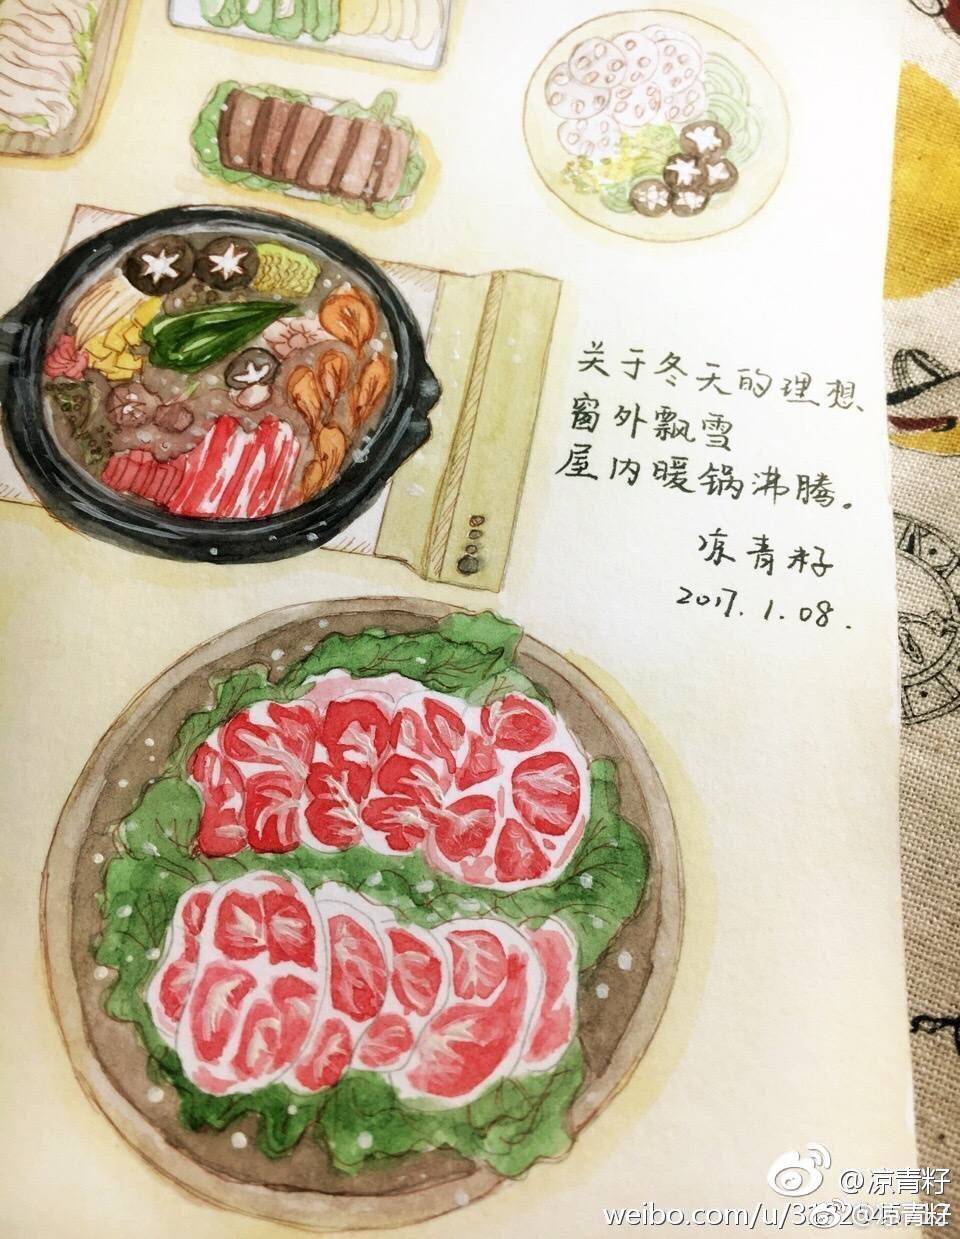 关于冬天的理想
窗外飘雪
屋内暖锅沸腾。
凉青籽
2017.1.08.
@凉青籽
weibo.com/u/3
凉青籽